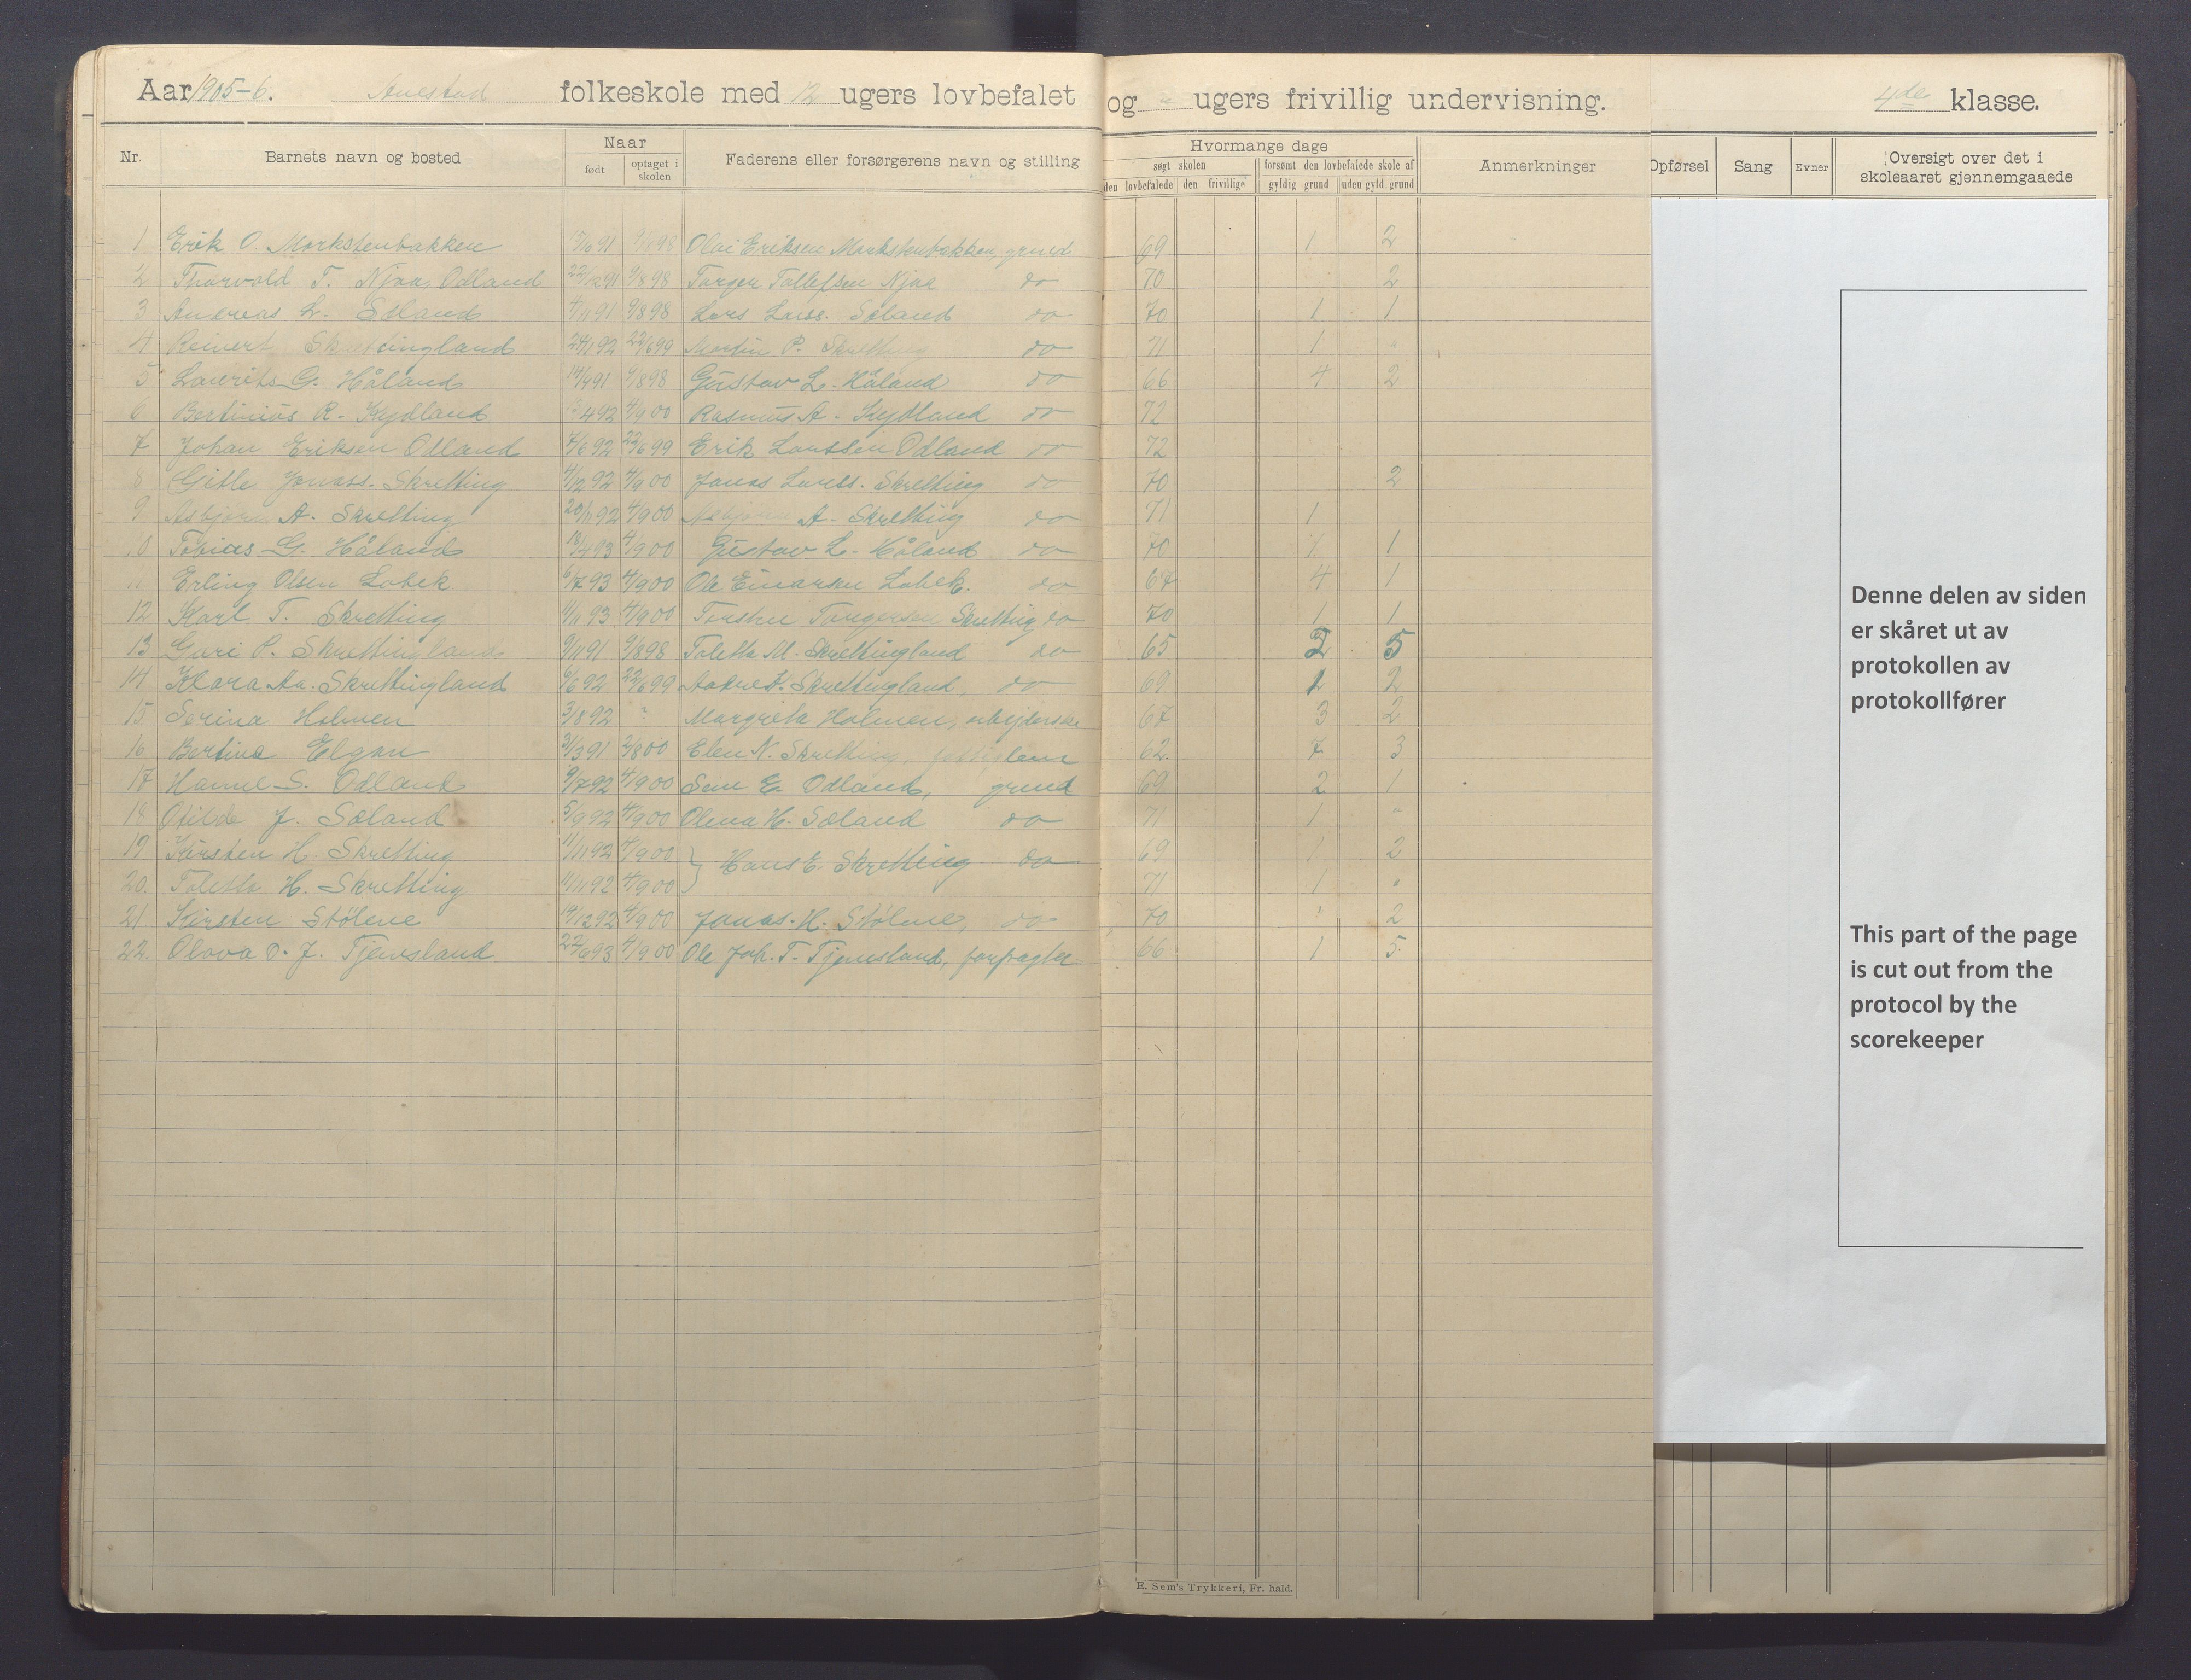 Aar 1905-6. Auestad folkeskole med 12 ugers lovbefalet og " ugers frivillig undervisning. 4de klasse.
Nr. Barnets navn og bosted Naar født optaget i skolen Faderens eller forsørgerens navn og stilling Hvormange dage søgt skolen den lovbefalede den frivillige forsømt den lovbefalede skole af gyldig grund uden gyld. grund Anmerkninger Opførsel Sang Evner Oversigt over det i skoleaaret gjennemgaaede
1 Erik O. Morkstenbakken 91 9/8 98 Olai Eriksen Morkstenbakken, grmd 69 1 2
2 Thorvald T. Njaa, Odland 22/12 91 9/8 98 Torger Tollefsen Njaa do 70 2
3 Andreas L. Sæland 4/11 91 9/8 98 Lars Larss. Sæland do 70 1 1
4 Reinert Skrettingland 24/1 92 22/6 99 Martin P. Skretting do 71 1 "
5 Laurits G. Håland 14/4 91 9/8 98 Gustav L. Håland do 66 4 2
6 Bertinius R. Kydland 4 92 4/9 00 Rasmus A. Kydland do 72
7 Johan Eriksen Odland 4/6 92 22/6 99 Erik Larssen Odland do 72
8 Gitle Jonass. Skretting 4/12 92 4/9 00 Jonas Larss. Skretting do 70 2
9 Asbjørn A. Skretting 20/11 92 4/9 00 Asbjørn A. Skretting do 71 1
10 Tobias G. Håland 18/4 93 4/9 00 Gustav L. Håland do 70 1 1
11 Erling Olsen Lobek 6/7 93 4/9 00 Ole Einarsen Lobek. do 67 4 1
12 Karl T. Skretting 11/11 93 4/9 00 Torsten Torgersen Skretting do 70 1 1
13 Guri P. Skrettingland 9/11 91 9/8 98 Taletta M. Skrettingland do 65 2 5
14 Klara Aa. Skrettingland 6/6 92 22/6 99 Skrettingland, do 69 1 2
15 Serina Holmen 3/8 92 ? Margreta Holmen, arbejderske 67 3 2
16 Bertina Elgan 31/3 91 2/8 00 Elen N. Skretting, 62. 7 3
17 Hanne S. Odland 9/7 92 4/9 00 Sem E. Odland, grmd 69 2 1
18 Otilde J. Sæland 5/9 92 4/9 00 Olena H. Sæland do 71 1 "
19 Kirsten H. Skretting 11/11 92 4/9 00 } Hans E. Skretting do 69 1 2
20. Taletta H. Skretting 11/11 92 4/9 00 71 1 "
21 Kirsten Stølene 14/12 92 4/9 00 Jonas H. Stølene, do 70 1 2
22. Olava O. J. Tjensland 22/6 93 4/9 00 Ole Joh. T. Tjensland, forpagter 66 1 5.
Denne delen av siden
er skåret ut av
protokollen av
protokollfører
This part of the page
is cut out from the
protocol by the
scorekeeper
E. Sem's Trykkeri, Fr. hald.